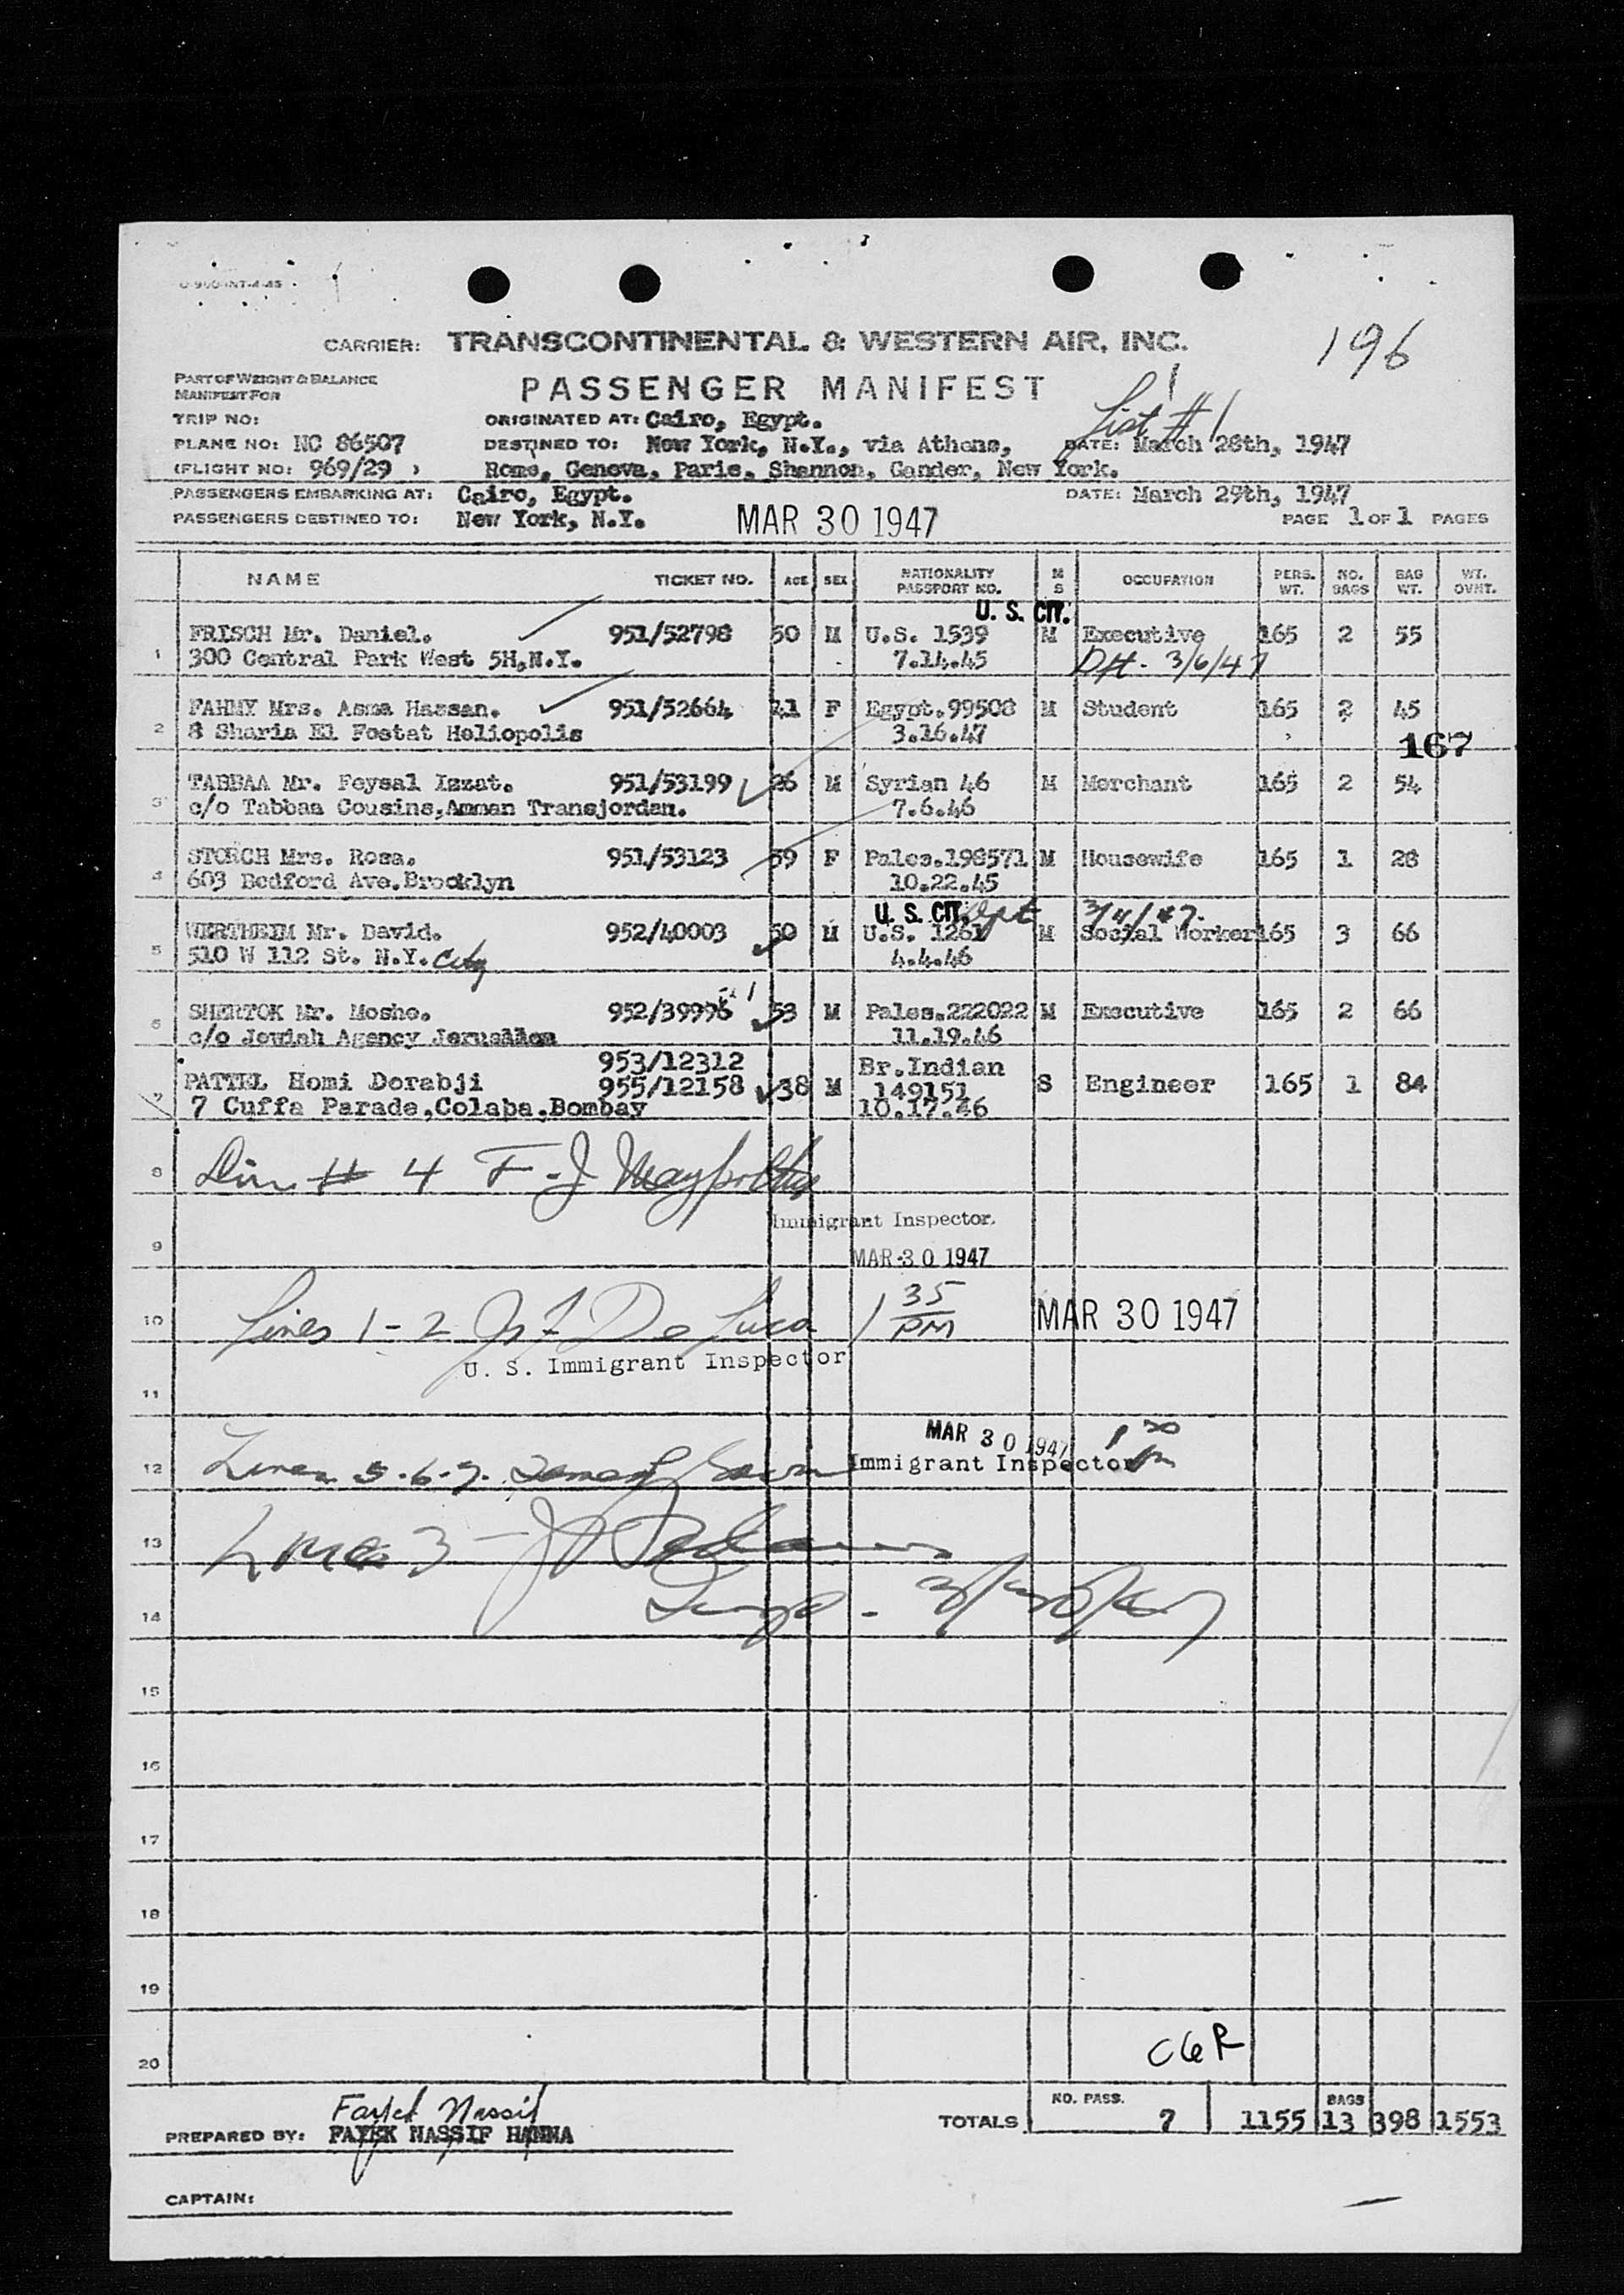 CARRIER: TRANSCONTINENTAL & WESTERN AIR, INC.
196
PART OF WEIGHT & BALANCE
MANIFEST FOR
PASSENGER MANIFEST
List # 1
TRIP NO:
ORIGINATED AT: Cairo, Egypt.
PLANE NO: NC 86507
DESTINED TO: New York, N.Y., via Athens,
DATE: March 28th, 1947
(FLIGHT NO: 969/29 )
Rome, Geneva, Paris, Shannon, Gander, New York.
PASSENGERS EMBARKING AT: Cairo, Egypt.
DATE: March 29th, 1947
PASSENGERS DESTINED TO: New York, N.Y.
MAR 30 1947
PAGE 1 OF 1 PAGES
NAME TICKET NO. AGE SEX NATIONALITY PASSPORT NO. M S OCCUPATION PERS. WT. NO. BAGS BAG WT. WT. OVNT.
U. S. CIT.
1 FRISCH Mr. Daniel. 951/52798 50 M U.S. 1539 M Executive 165 2 55
300 Central Park West 5H,N.Y. 7.14.45 3/6/47
2 FAHMY Mrs. Asma Hassan. 951/52664 21 F Egypt.99508 M Student 165 2 45
8 Sharia El Fostat Heliopolis 3.16.47
167
3 TABBAA Mr. Feysal Izzat. 951/53199 26 M Syrian 46 M Merchant 165 2 54
c/o Tabbaa Cousins,Amman Transjordan. 7.6.46
4 STORCH Mrs. Rosa. 951/53123 59 F Pales.198571 M Housewife 165 1 28
603 Bedford Ave.Brooklyn 10.22.45
U. S. CIT.
5 WERTHEIM Mr. David. 952/40003 50 M U.S. 1261 M Social Worker 165 3 66
510 W 112 St. N.Y. City 4.4.46
6 SHERTOK Mr. Moshe. 952/39996 53 M Pales.222022 M Executive 165 2 66
c/o Jewish Agency Jerusalem 11.19.46
953/12312 Br.Indian
7 PATTEL Homi Dorabji 955/12158 38 M 149151 S Engineer 165 1 84
7 Cuffa Parade,Colaba,Bombay 10.17.46
8 # 4 F. J.
Immigrant Inspector.
9 MAR 30 1947
10 Lines 1 - 2 De Luca 1 35 PM MAR 30 1947
U. S. Immigrant Inspector
11
MAR 30 1947
12 Lines 5-6-7. Immigrant Inspector
13 Line 3 -
14 3/30/47
15
16
17
18
19
20 CGR
Fayek Nassif
PREPARED BY: FAYEK NASSIF HANNA
TOTALS NO. PASS. 7 1155 BAGS 13 398 1553
CAPTAIN: